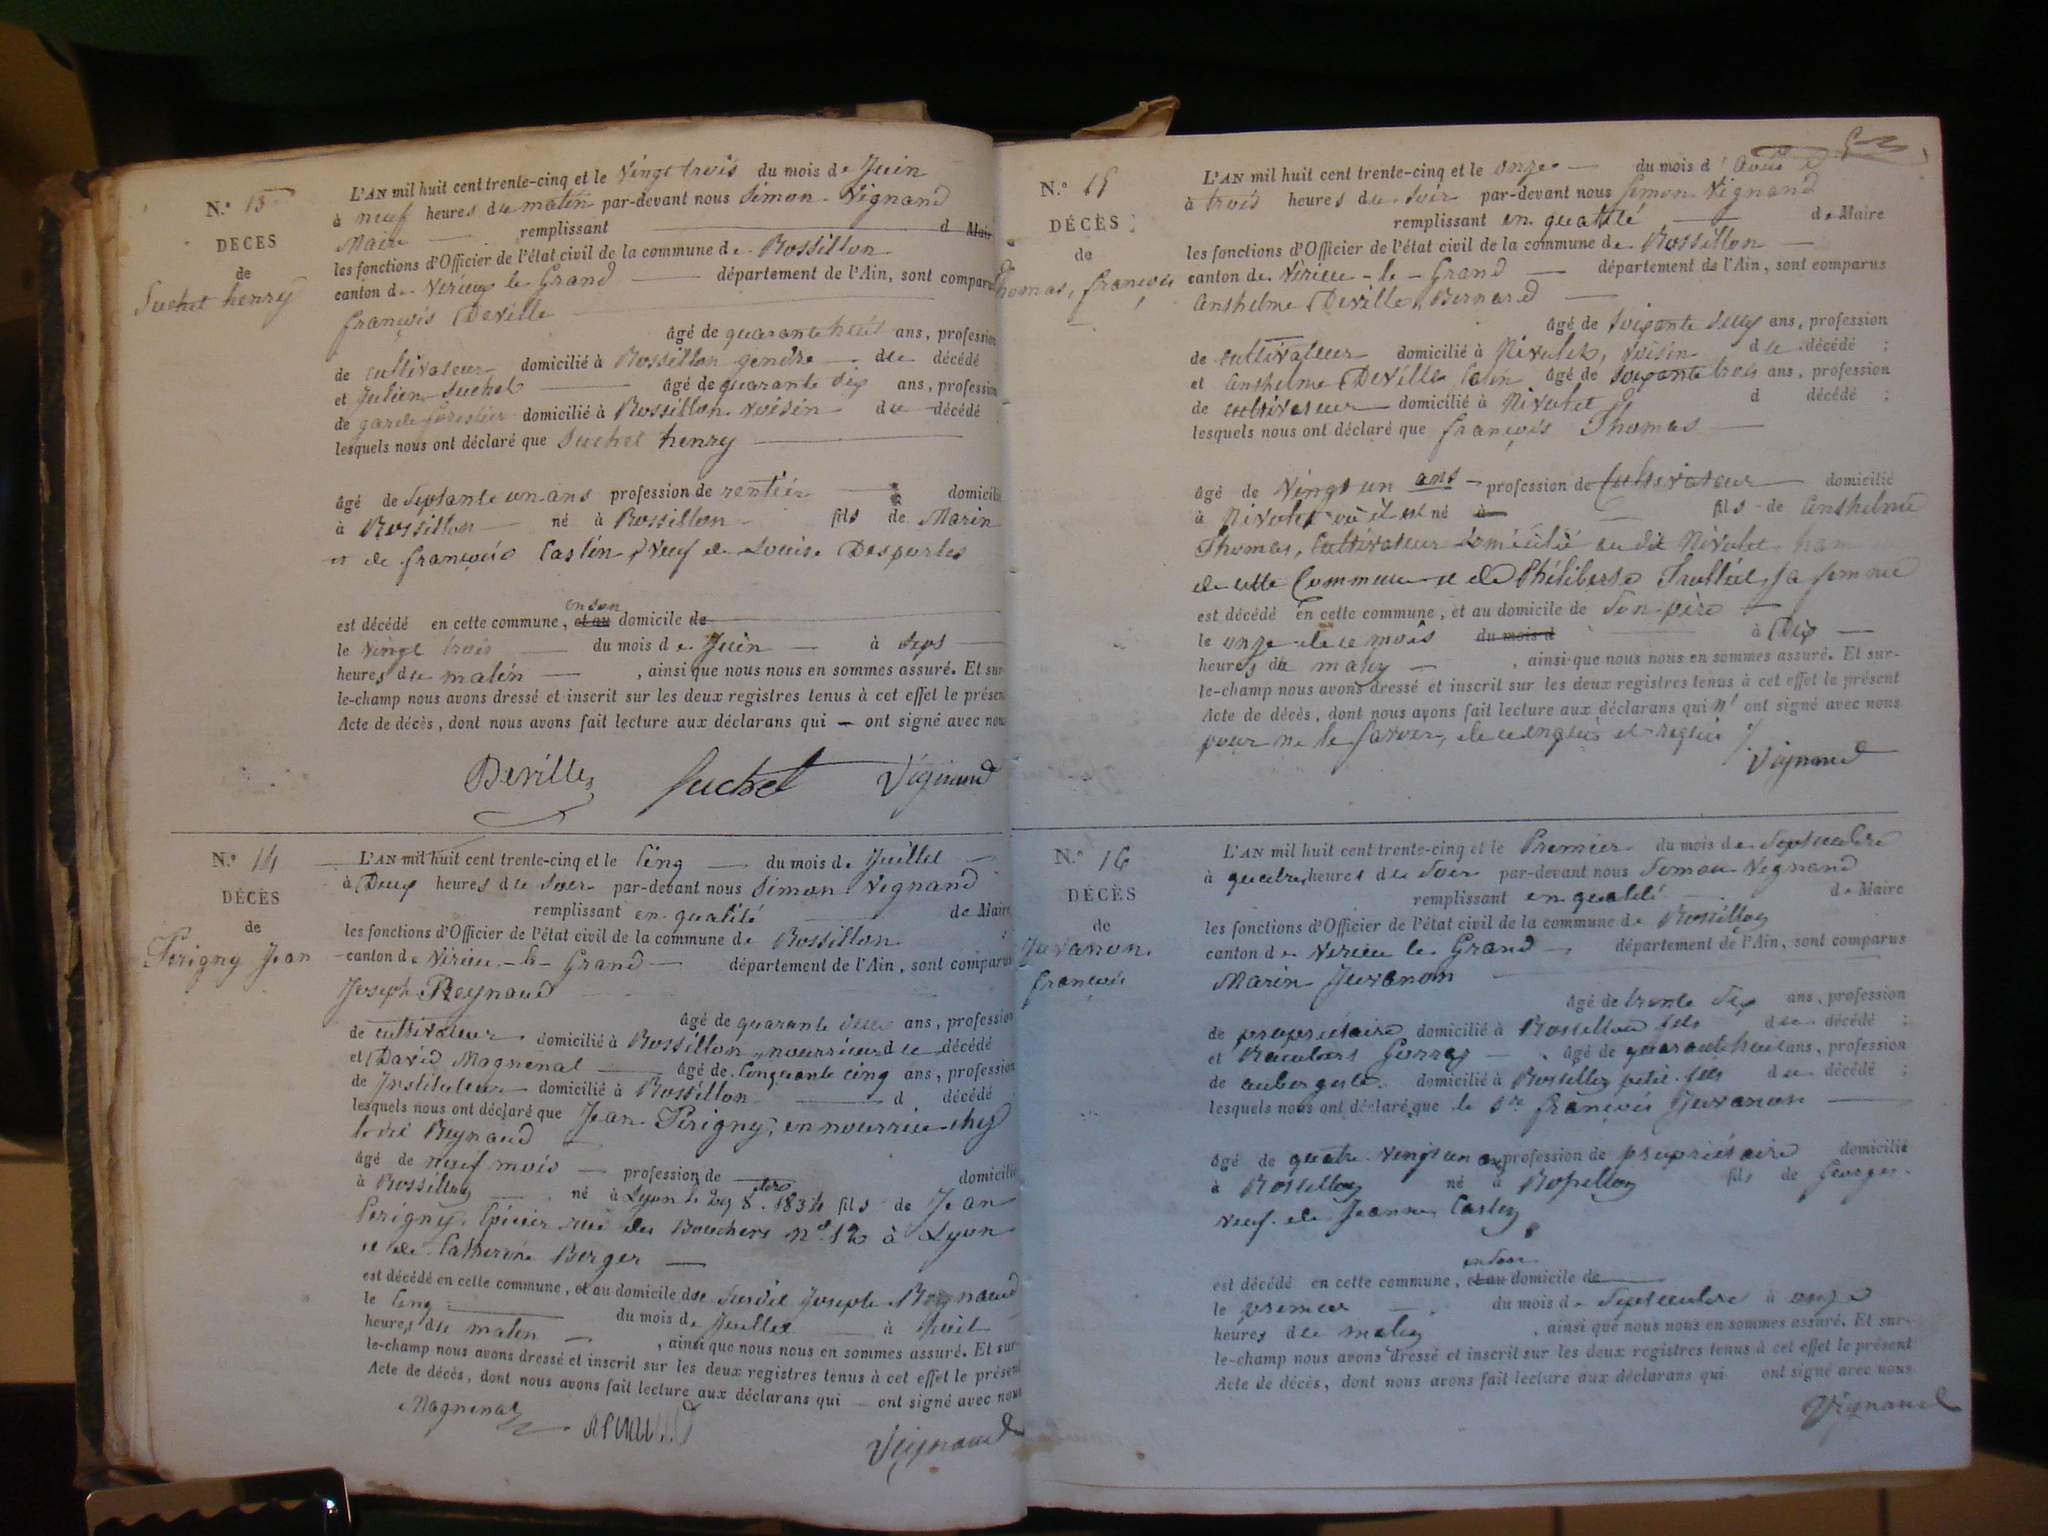 N.o 13
DÉCÈS
de
Suchet henry
L'AN mil huit cent trente-cinq et le Vingt trois du mois de Juin
à neuf heures du matin par-devant nous Simon Vignand
Maire remplissant d Maire
les fonctions d'Officier de l'état civil de la commune de Rossillon
canton de Virieu le Grand département de l'Ain, sont comparus
françois Deville
âgé de quarante huit ans, profession
de cultivateur domicilié à Rossillon gendre du décédé
et Julien Suchet âgé de quarante six ans, profession
de garde forestier domicilié à Rossillon voisin du décédé
lesquels nous ont déclaré que Suchet henry
âgé de Septante un ans profession de rentier domicilié
à Rossillon né à Rossillon fils de Marin
et de françoise Castin, Veuf de Louise Desportes
en son
est décédé en cette commune, et au domicile de
le Vingt trois du mois de Juin à Sept
heures du matin , ainsi que nous nous en sommes assuré. Et sur-
le-champ nous avons dressé et inscrit sur les deux registres tenus à cet effet le présent
Acte de décès, dont nous avons fait lecture aux déclarans qui ont signé avec nous
Deville Suchet Vignand
N.o 14
DÉCÈS
de
Perigny Jean
L'AN mil huit cent trente-cinq et le Cinq du mois de Juillet
à Deux heures du Soir par-devant nous Simon Vignand
remplissant en qualité de Maire
les fonctions d'Officier de l'état civil de la commune de Rossillon
canton de Virieu-le-Grand département de l'Ain, sont comparus
Joseph Reynaud
âgé de quarante deux ans, profession
de cultivateur domicilié à Rossillon nourricier du décédé
et David Magnenat âgé de Cinquante cinq ans, profession
de Instituteur domicilié à Rossillon d décédé
lesquels nous ont déclaré que Jean Perigny, en nourrice chez
le dit Reynaud
âgé de neuf mois profession de domicilié
à Rossillon né à Lyon le 29 8.bre 1834 fils de Jean
Perigny, Epicier rue des Bouchers n.o à Lyon
et de Catherine Berger
est décédé en cette commune, et au domicile de Susdit Joseph Reynaud
le Cinq du mois de Juillet à huit
heures du matin , ainsi que nous nous en sommes assuré. Et sur-
le-champ nous avons dressé et inscrit sur les deux registres tenus à cet effet le présent
Acte de décès, dont nous avons fait lecture aux déclarans qui ont signé avec nous
Magnenat Vignand
N.o 15
DÉCÈS
de
Thomas, françois
L'AN mil huit cent trente-cinq et le onze du mois d'Août
à trois heures du Soir par-devant nous Simon Vignand
remplissant en qualité de Maire
les fonctions d'Officier de l'état civil de la commune de Rossillon
canton de Virieu-le-Grand département de l'Ain, sont comparus
Anthelme Deville Bernard
âgé de Soixante deux ans, profession
de cultivateur domicilié à Nivolet, voisin du décédé ;
et Anthelme Deville Catin âgé de Soixante trois ans, profession
de cultivateur domicilié à Nivolet d décédé ;
lesquels nous ont déclaré que françois Thomas
âgé de Vingt un ans profession de Cultivateur domicilié
à Nivolet où il est né à fils de Anthelme
Thomas, Cultivateur domicilié au dit Nivolet
de cette Commune et de Philiberte Trolliet, sa femme
est décédé en cette commune, et au domicile de Son père
le onze de ce mois du mois d à Dix
heures du matin , ainsi que nous nous en sommes assuré. Et sur-
le-champ nous avons dressé et inscrit sur les deux registres tenus à cet effet le présent
Acte de décès, dont nous avons fait lecture aux déclarans qui n' ont signé avec nous
pour ne le savoir, de ce enquis et requis
Vignand
N.o 16
DÉCÈS
de
Juvanon
françois
L'AN mil huit cent trente-cinq et le Premier du mois de Septembre
à quatre heures du Soir par-devant nous Simon Vignand
remplissant en qualité de Maire
les fonctions d'Officier de l'état civil de la commune de Rossillon
canton de Virieu le Grand département de l'Ain, sont comparus
Marin Juvanon
âgé de trente Six ans, profession
de propriétaire domicilié à Rossillon fils du décédé ;
et âgé de quarante huit ans, profession
de aubergiste domicilié à Rossillon petit fils du décédé ;
lesquels nous ont déclaré que le Sr françois Juvanon
âgé de quatre Vingt un ans profession de propriétaire domicilié
à Rossillon né à Rossillon fils de Georges
veuf de Jeanne Castin
en Son
est décédé en cette commune, et au domicile de
le premier du mois de Septembre à onze
heures du matin , ainsi que nous nous en sommes assuré. Et sur-
le-champ nous avons dressé et inscrit sur les deux registres tenus à cet effet le présent
Acte de décès, dont nous avons fait lecture aux déclarans qui ont signé avec nous
Vignand